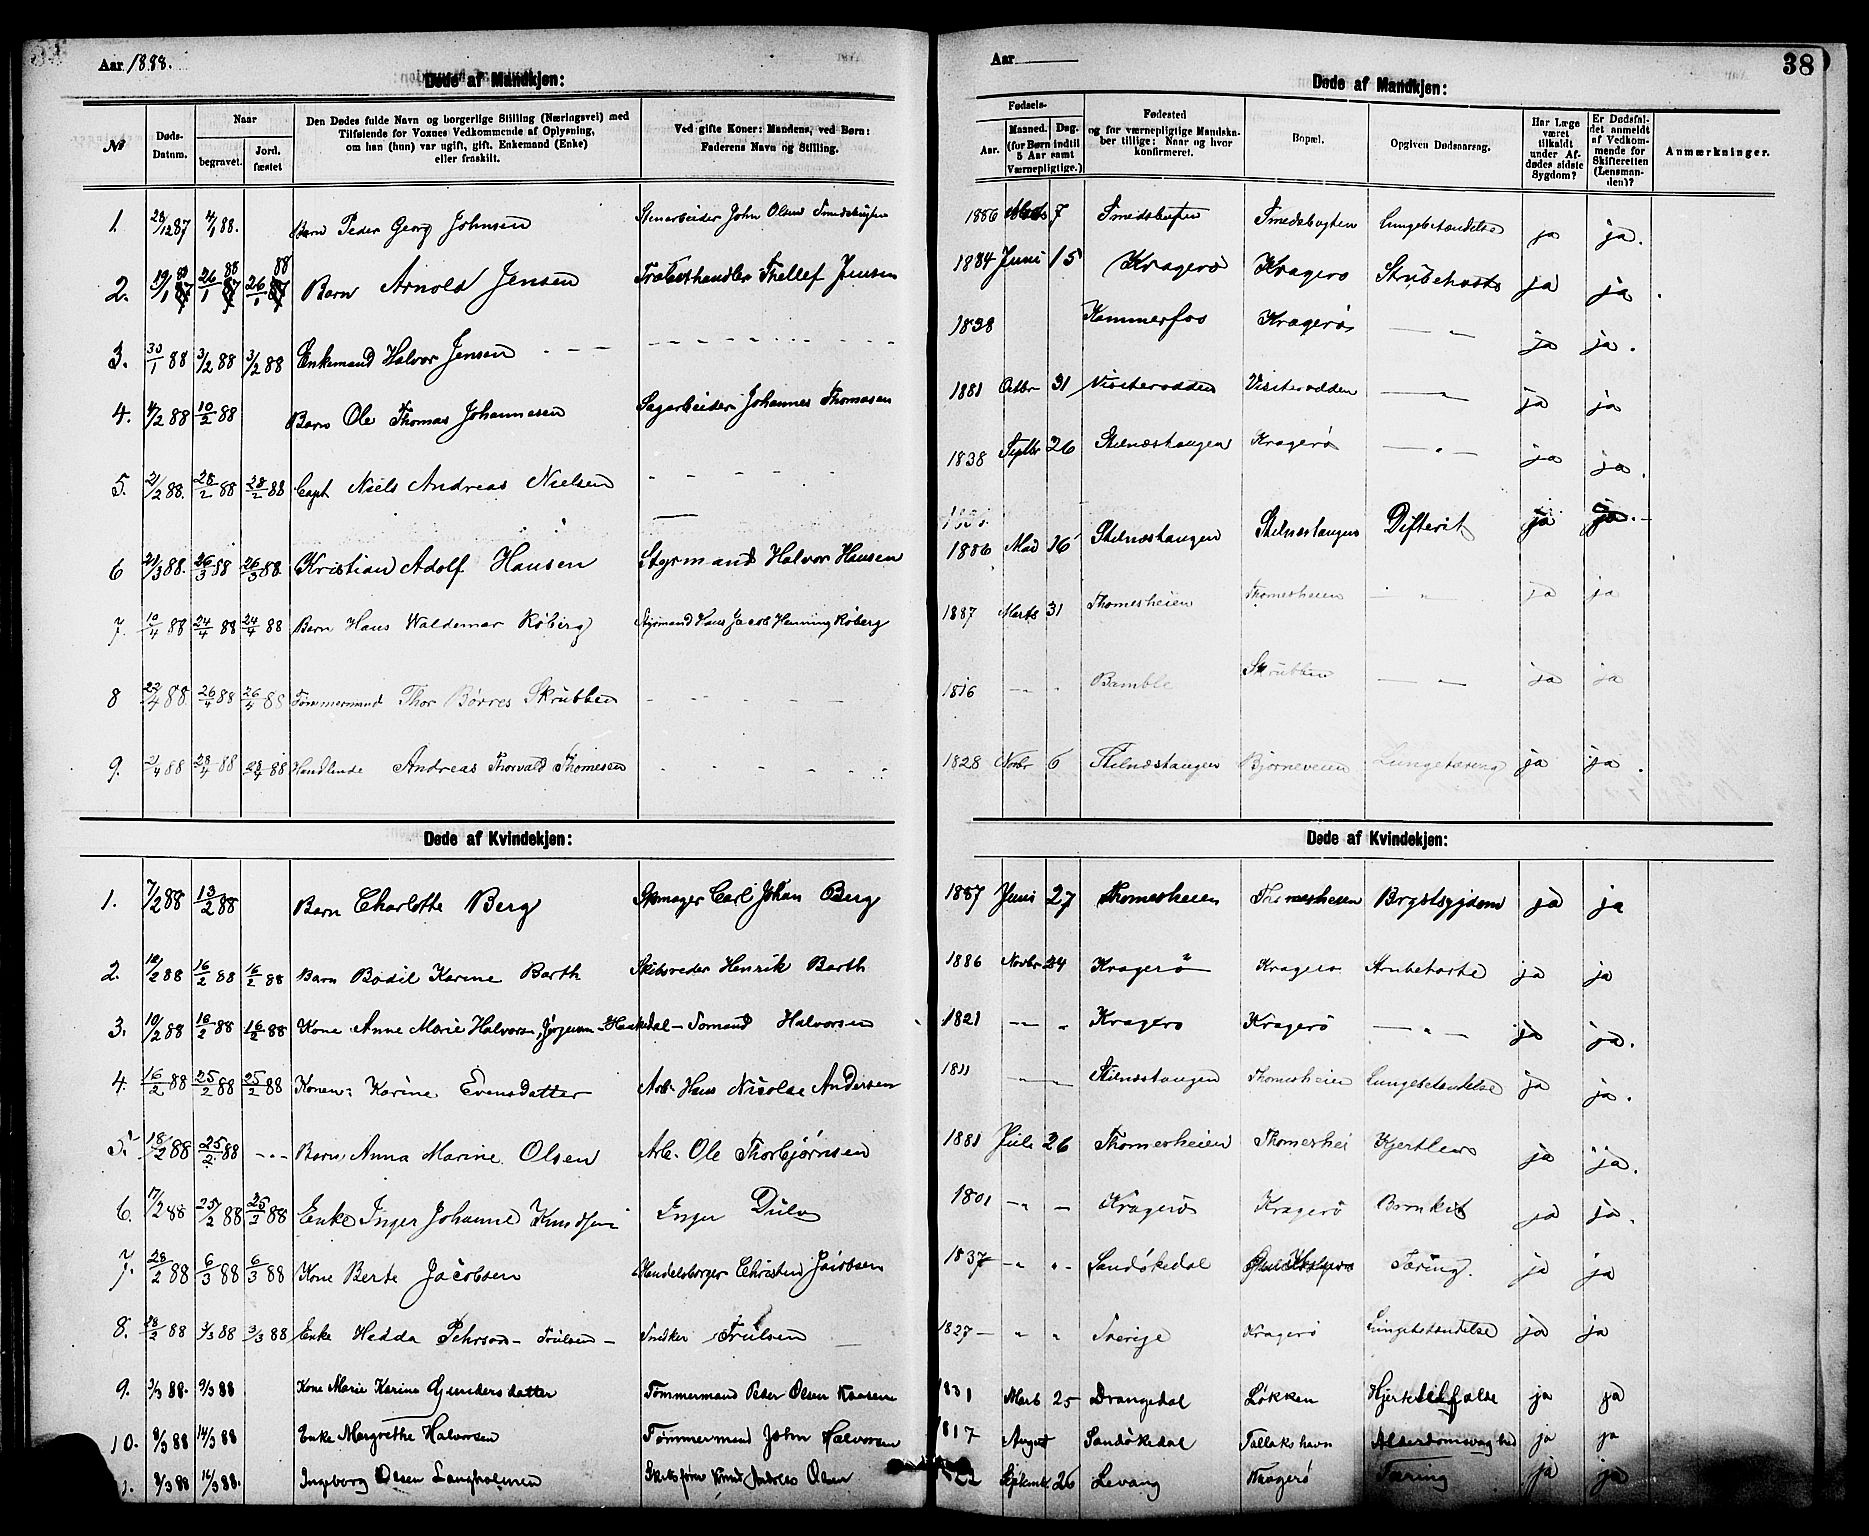 Aar 1888.
Døde af Mandkjøn:
№ Døds-Datum. Naar begravet. Jord-fæstet Den Dødes fulde Navn og borgerlige Stilling (Næringsvei) med Tilføiende for Voxnes Vedkommende af Oplysning, om han (hun) var ugift, gift, Enkemand (Enke) eller fraskilt. Ved gifte Koner: Mandens, ved Børn: Faderens Navn og Stilling.
1. 28/12 87 4/1 88. Barn Peder Georg Johnsen Stenarbeider John Olsen Smedsbugten
2. 19/1 88 26/1 88 26/1 88 Barn Arnold Jensen Trælasthandler Thellef Jensen
3. 30/1 88 3/2 88 3/2 88 Enkemand Halvor Jensen
4. 4/2 88 10/2 88 Barn Ole Thomas Johannesen Sagarbeider Johannes Thomasen
5. 21/2 88. 28/2 88 28/2 88 Capt Niels Andreas Nielsen
6 21/3 88. 26/3 88 26/3 88. Kristian Adolf Hansen Styrmand Halvor Hansen
7. 12/4 88 24/4 88 24/4 88 Barn Hans Waldemar Röberg Styrmand Hans Jacob Henning Röberg
8 22/4 88. 26/4 88 26/4 88 Tømmermand Thor Børres Skrubben
9. 21/4 88 28/4 88 28/4 88 Handlende Andreas Thorvald Thomesen
Døde af Kvindekjøn:
1. 7/2 88 13/2 88 Barn Charlotte Berg Skomager Carl Johan Berg
2. 10/2 88 16/2 88 16/2 88 Barn Bodil Karine Barth Skibsreder Henrik Barth
3. 10/2 88 16/2 88 16/2 88 Kone Anne Marie Halvorsen, Haakedal - Sømand Halvorsen
4. 16/2 88 25/2 88 25/2 88 Konen: Karine Evensdatter Arb- Hans Nicolai Andersen
5. 18/2 88 25/2 88 Barn, Anna Marine Olsen Arb. Ole Thorbjørnsen
6. 17/2 88 25/2 88 88 Enke Inger Johanne Knudsen
7. 28/2 88 6/3 88 6/3 88 Kone Berte Jacobsen Handelsborger Christen Jacobsen
8. 28/2 88 3/3 88 3/3 88 Enke Hedda Pehrson - Trulsen - Snedker Trulsen
9. 3/3 88. 9/3 88 Kone Marie Karine Gundersdatter Tømmermand Peder Olsen Kaasene
10. 8/3 88 14/3 88 Enke Margrethe Halvorsen Tømmermand John Halvorsen
8/3 88 16/3 88. Ingeborg Olsen Langholmen Skibsförer Knud Andreas Olsen
Aar
38
Døde af Mandkjøn:
Fødsels- Aar. Maaned. Dag. (for Børn indtil 5 Aar samt Værnepligtige.) Fødested og for værnepligtige Mandskaber tillige: Naar og hvor konfirmeret. Bopæl. Opgiven Dødsaarsag. Har Læge været tilkaldt under Afdødes sidste Sygdom? Er Dødsfaldet anmeldt af Vedkommende for Skifteretten (Lensmanden)? Anmærkninger.
1886 7 Smedsbugten Smedsbugten Lungebetændelse ja ja.
1884 Juni 15 Kragerö Kragerö Strubehoste ja ja.
1838 Kammerfos Kragerö — " — ja ja.
1881 Octbr 31 Visiterodden Visiterodden — " — ja ja
1838 Septbr 26 Stilnæstangen Kragerö — " — ja ja.
1886 Mai 16 Stilnæstangen Stilnæstangen Difterit ja ja.
1887 Marts 31 Thomesheien Thomesheien - " - ja ja
1816 - " Bamble Skrubben — " — ja ja
1828 Novbr 6 Stilnæstangen Bjørneveien Lungetæring ja ja.
Døde af Kvindekjøn:
1887 Juni 27 Thomesheien Thomesheien Brystsygdom ja ja
1886 Novbr 24 Kragerö Kragerö Strubehoste ja ja
1821 - " Kragerö Kragerö — " — ja ja.
1811 Stilnæstangen Thomesheien Lungebetændelse ja ja.
1881 Juli 26 Thomesheien Thomeshei Kjertler ja ja.
1801 - " - Kragerö Kragerö Bronkit ja ja.
1837 - " " - Sandökedal Tæring. ja ja
1827 - " " Sverige Kragerö Lungebetændelse ja ja
1831 Marts 25 Drangedal Løkken Hjertetilfælde ja ja
1817 August Sandökedal Tallakshavn Alderdomssvaghed ja ja
22 Septembr 26 Levang Kragerö Tæring ja ja